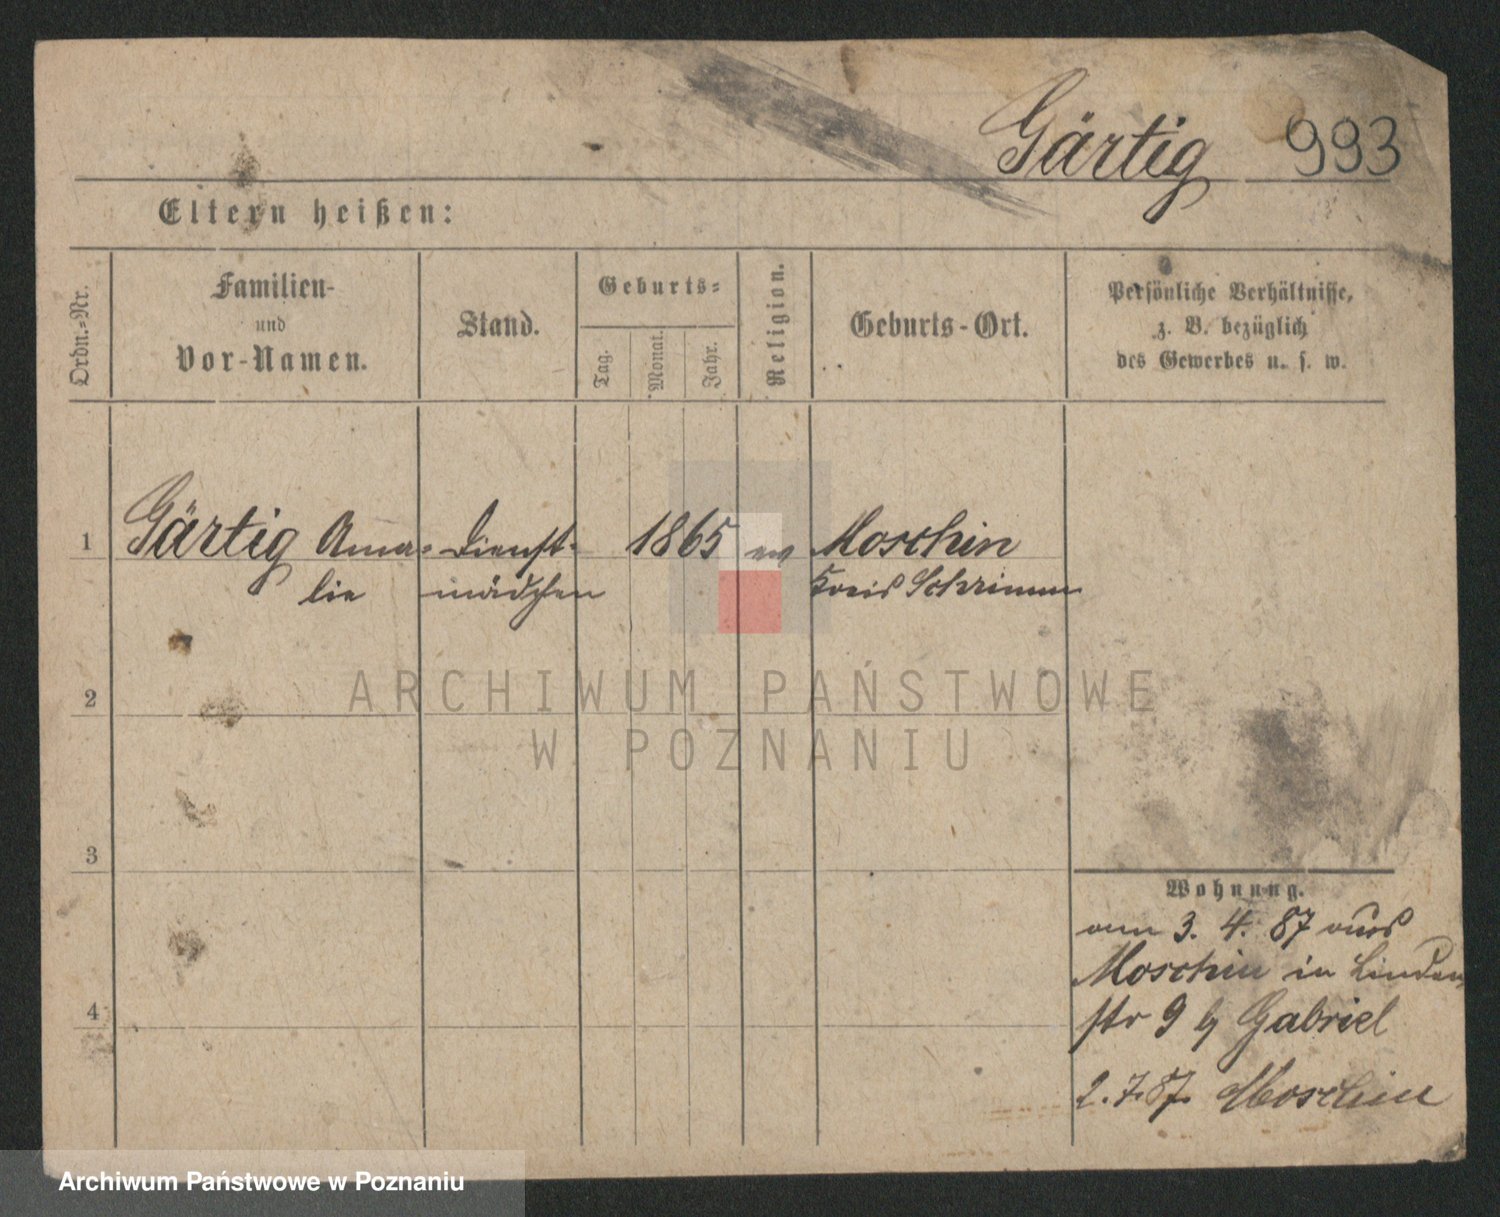 Gärtig 993
Eltern heißen:
Ordn.=Nr.
Familien-
und
Vor-Namen.
Stand.
Geburts=
Tag.
Monat.
Jahr.
Religion.
Geburts-Ort.
Persönliche Verhältnisse,
z. B. bezüglich
des Gewerbes u. s. w.
1 Gärtig Ama= Dienst= 1865 ev Moschin
lie mädchen Kreis Schrimm
2
3
4
Wohnung.
am 3. 4. 87 aus
Moschin in Linden
str 9 b Gabriel
2.7.87. Moschin
ARCHIWUM PAŃSTWOWE
W POZNANIU
Archiwum Państwowe w Poznaniu